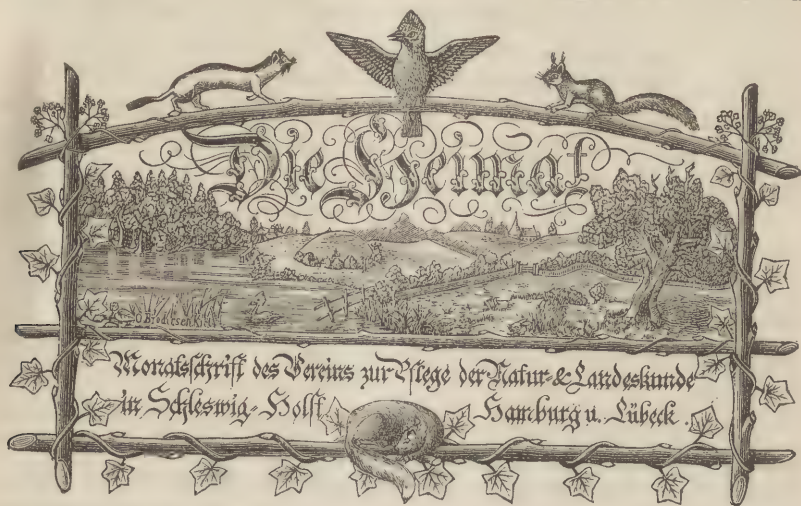 Die Heimat
Monatsschrift des Vereins zur Pflege der Natur-& Landeskunde
in Schleswig-Holst Hamburg u. Lübeck.